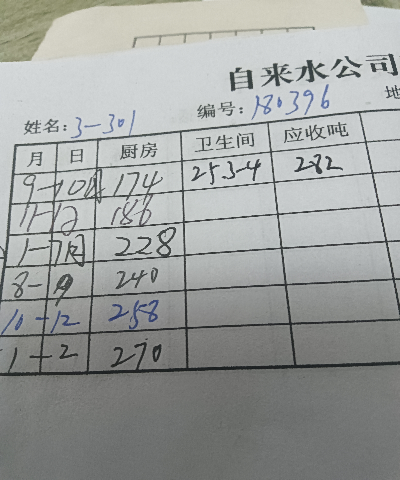 自来水公司
姓名: 3-301 编号: 180396 地
月 日 厨房 卫生间 应收吨
9-10月 174 253-4 282
11-12 186
1-7月 228
8-9 240
10-12 258
1-2 270